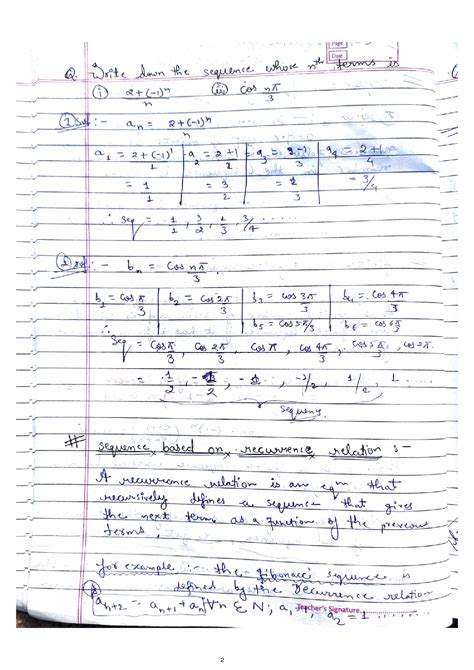 Q. Write down the sequence whose nth terms is
(i) 2+(-1)^n / n (ii) cos nπ/3
(1) Sol :- a_n = 2+(-1)^n / n
a_1 = 2+(-1)^1 / 1 | a_2 = 2+1 / 2 | a_3 = 2-1 / 3 | a_4 = 2+1 / 4
= 1/1 | = 3/2 | = 1/3 | = 3/4
∴ Seq = 1/1, 3/2, 1/3, 3/4 ......
(2) Sol :- b_n = Cos nπ/3.
b_1 = Cos π/3 | b_2 = Cos 2π/3 | b_3 = cos 3π/3 | b_4 = Cos 4π/3
b_5 = Cos 5π/3 | b_6 = cos 6π/3
∴ Seq = Cos π/3, Cos 2π/3, Cos π, Cos 4π/3, Cos 5π/3, Cos 2π.
= 1/2, -1/2, -1, -1/2, 1/2, 1 ....
sequence based on recurrence relation :-
A recurrence relation is an eqn that
recursively defines a sequence that gives
the next terms as a function of the previous
terms;
for example :- the fibonacci sequence is
defined by the recurrence relation
a_{n+2} = a_{n+1} + a_n ∀ n ∈ N; a_1 a_2 = 1 .....
Teacher's Signature
2